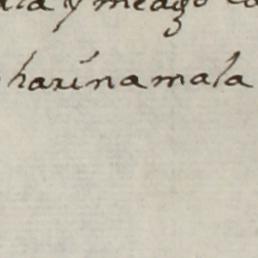 y meago
harina mala